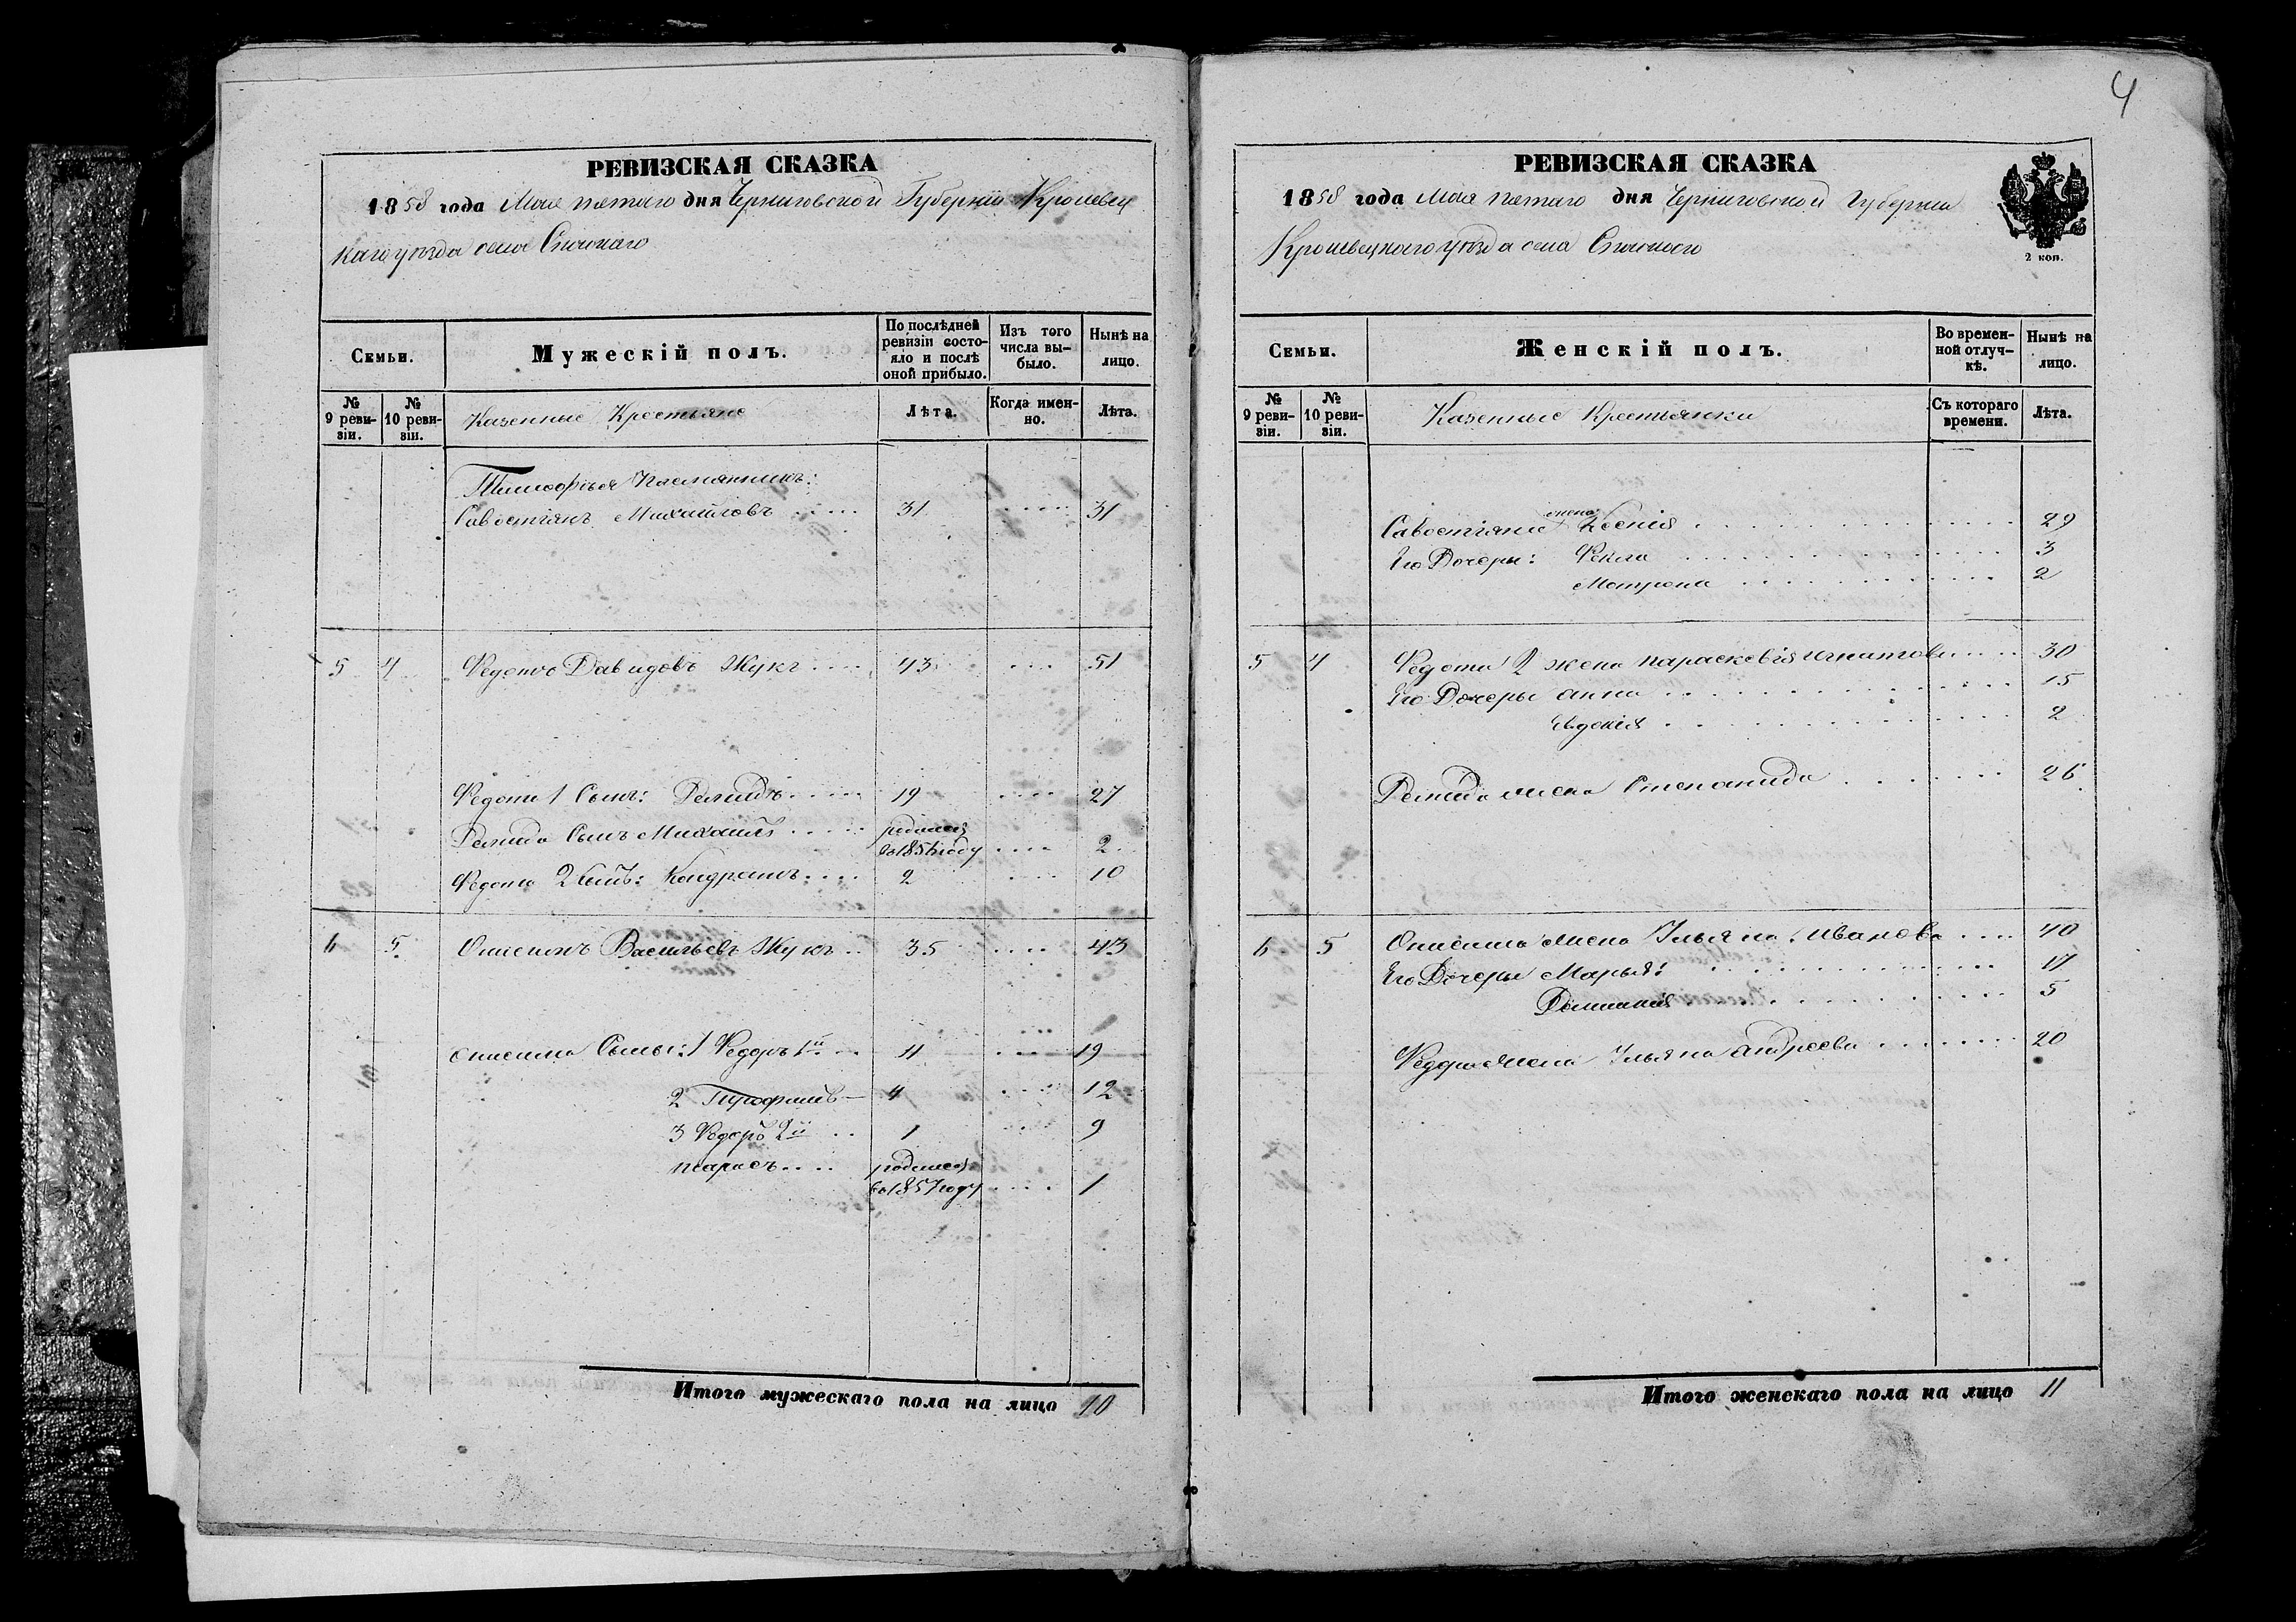 РЕВИЗСКАЯ СКАЗКА
1858 года Мая пятаго дня Черниговской Губерніи Кролевец
каго уезда села Спаскаго
Семьи.
Мужескій полъ.
По послѣдней ревизіи состояло и послѣ оной прибыло.
Изъ того числа выбыло.
Нынѣ на лицо.
№ 9 ревизіи.
№ 10 ревизіи.
Казенные Крестьяне
Лѣта.
Когда именно.
Лѣта.
Тимофѣя Племянникъ:
Савостіянъ Михайловъ ..... 31 ..... 31
5 4 Федотъ Давидовъ Жукъ .... 43 .... 51
Федота 1 Сынъ: Демидъ .... 19 .... 27
Демида Сынъ Михаилъ ..... родился
во 1856 году .... 2
Федота 2 Сынъ: Кондратъ .... 2 .... 10
6 5 Онисимъ Васильевъ Жукъ .. 35 .... 43
Онисима Сыны: 1 Федоръ 1й .. 11 .... 19
2 Трофимъ — 4 .... 12
3 Федоръ 2й .. 1 .... 9
Тарасъ .... родился
во 1857 году .... 1
Итого мужескаго пола на лицо 10
4
РЕВИЗСКАЯ СКАЗКА
1858 года Мая пятаго дня Черниговской Губерніи
Кролевецкаго уезда села Спаского
2 коп.
Семьи.
Женскій полъ.
Во временной отлучкѣ.
Нынѣ на лицо.
№ 9 ревизіи.
№ 10 ревизіи.
Казенные Крестьянки
Съ котораго времени.
Лѣта.
Савостіяна жена: Ксенія .... 29
Его Дочеры: Фекла .... 3
Матрона .... 2
5 4 Федота 2 жена Парасковія Игнатова .... 30
Его Дочеры Анна .... 15
Евдокія .... 2
Демида жена Степанида .... 26
6 5 Онисима жена Ульяна Иванова .... 40
Его Дочеры Марья: .... 17
Домникія .... 5
Федора жена Ульяна Андреева .... 20
Итого женскаго пола на лицо 11